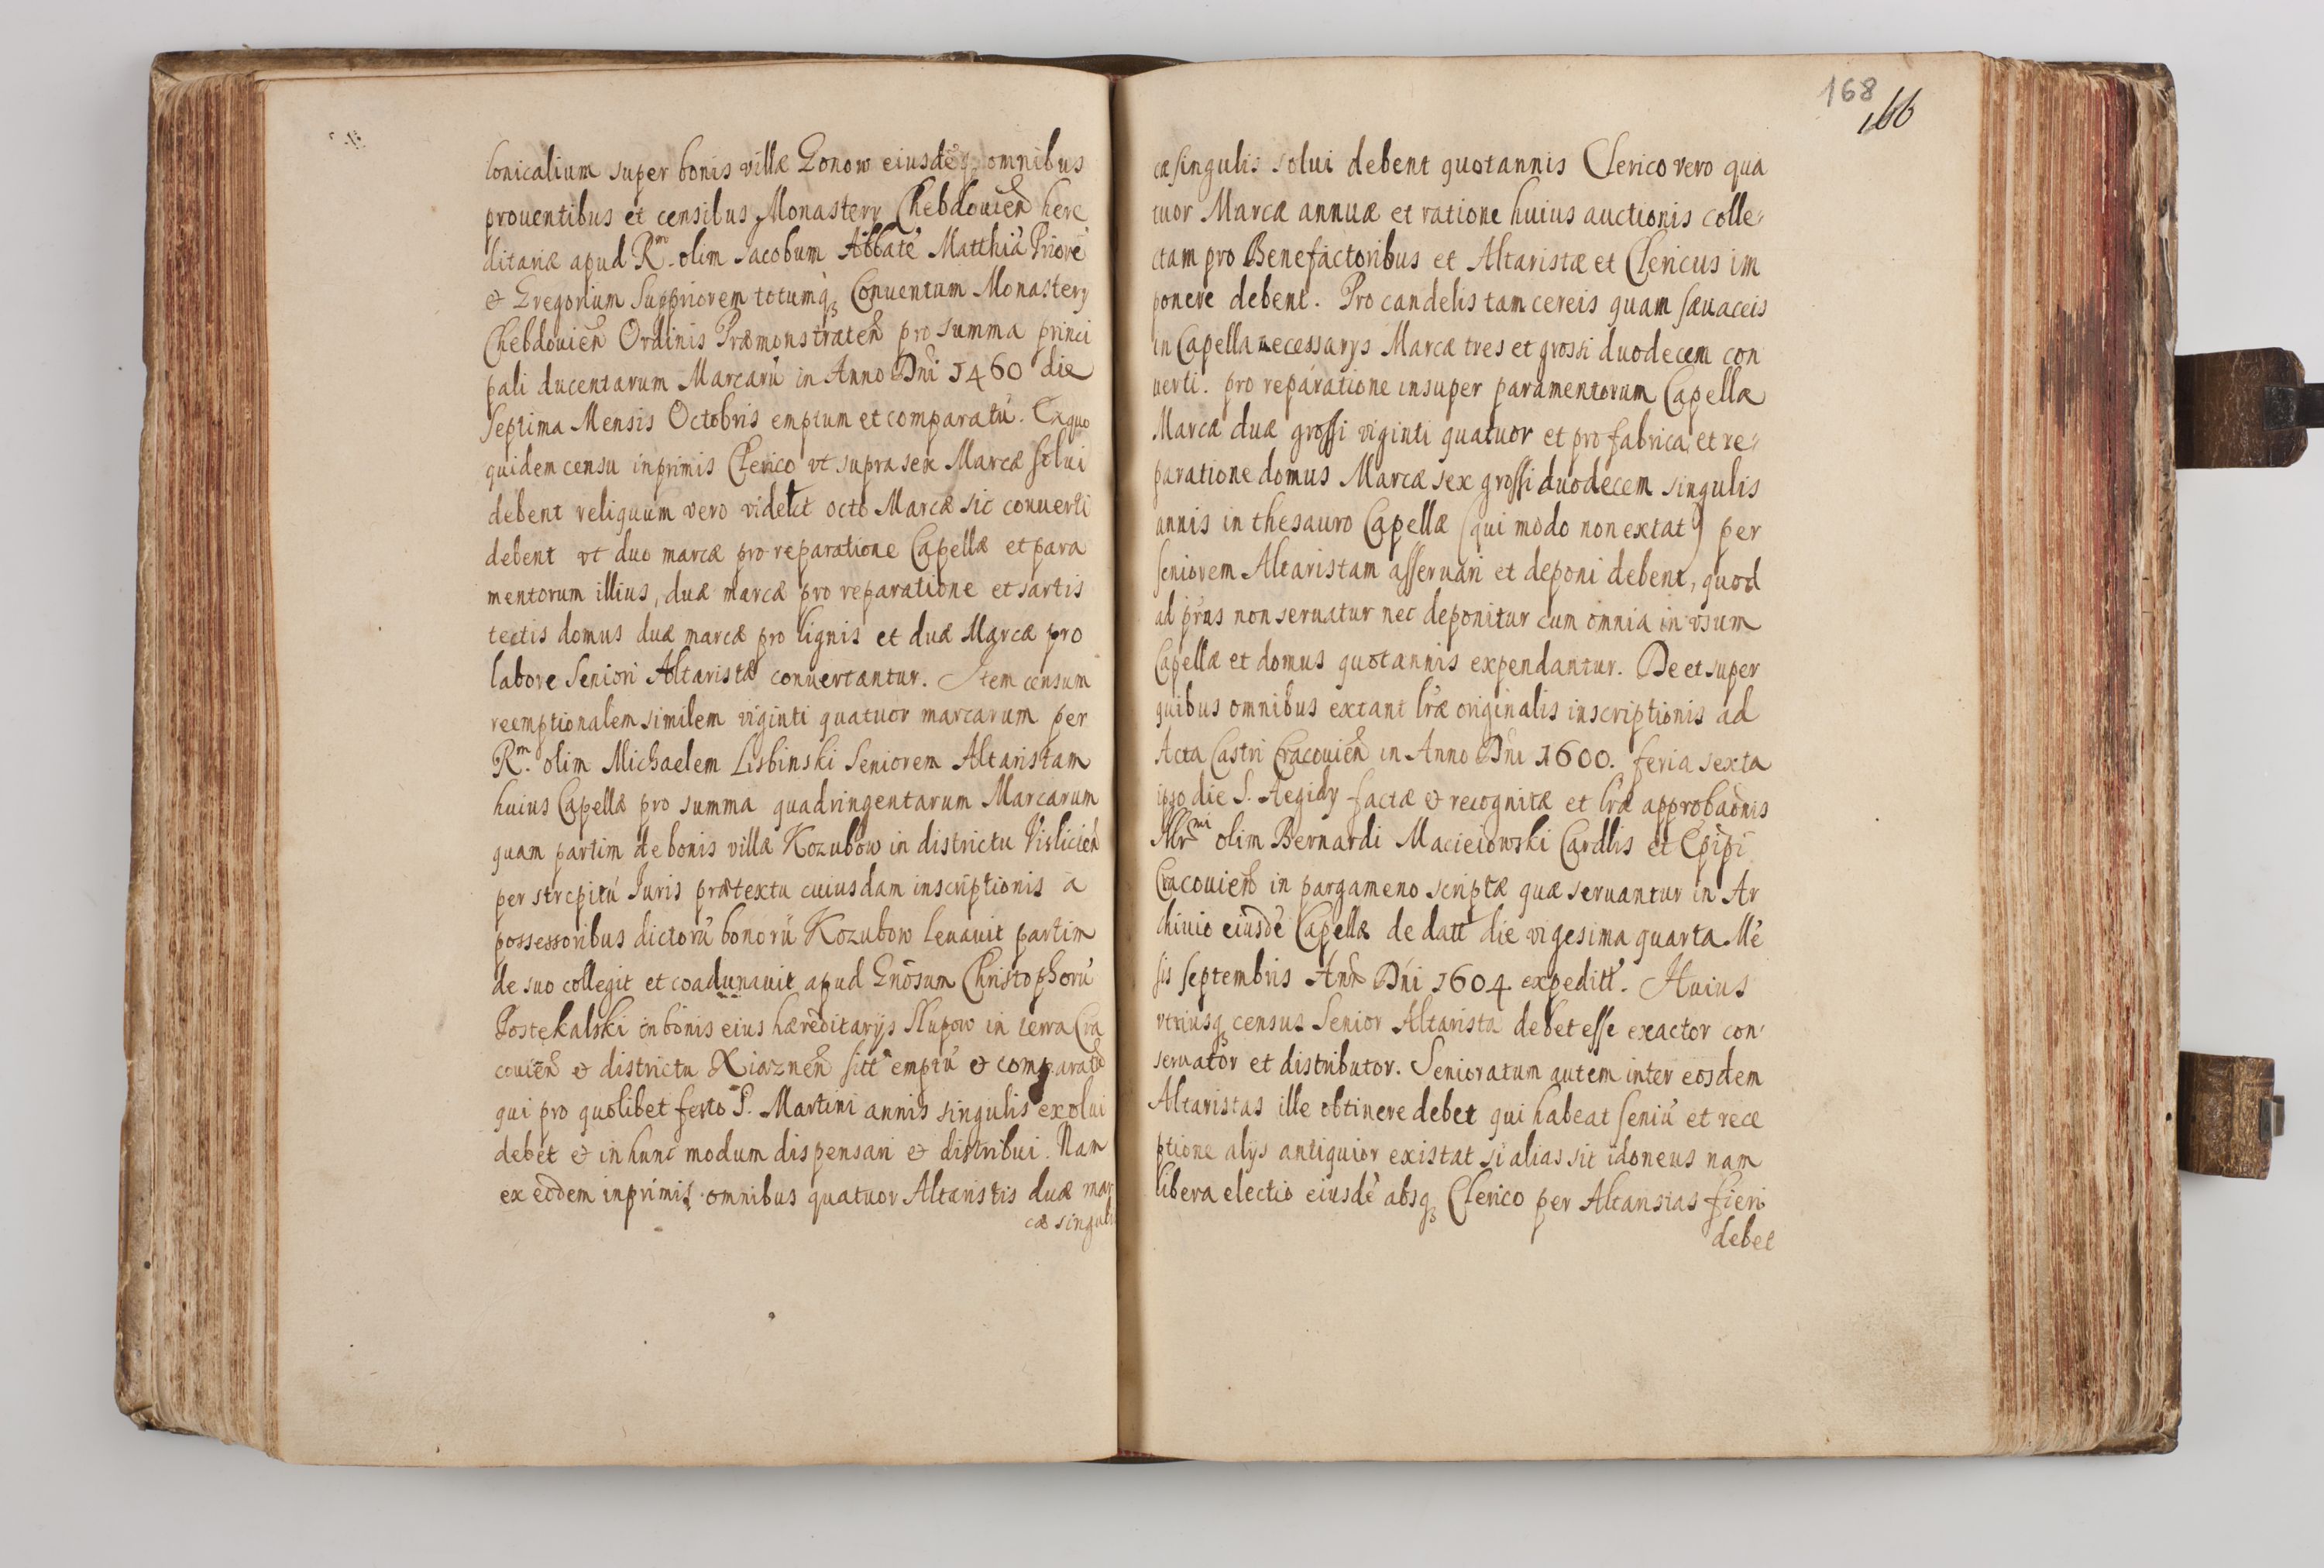 lonicalium super bonis villæ Gonow eiusdē omnibus
prouentibus et censibus Monastery Chebdouien̄ here
ditariæ apud Rm. olim Jacobum Abbatē Matthiā Priorē
& Gregorium Suppriorem totumq3 Conuentum Monastery
Chebdouien̄ Ordinis Præmonstraten̄ pro summa princi
pali ducentarum Marcarū in Anno Dn̄i 1460 die
Septima Mensis Octobris emptum et comparatū. Ex quo
quidem censu inprimis Clerico vt supra sex Marcæ solui
debent reliquum vero videlt octo Marcæ sic conuerti
debent vt duo marcæ pro reparatione Capellæ et para
mentorum illius, duæ marcæ pro reparatione et sartis
tectis domus duæ marcæ pro lignis et duæ Marcæ pro
labore Seniori Altaristæ conuertantur. Item censum
reemptionalem similem viginti quatuor marcarum per
Rm. olim Michaelem Lisbinski Seniorem Altaristam
huius Capellæ pro summa quadringentarum Marcarum
quam partim de bonis villæ Kozubow in districtu Vislicien̄
per strepitū Juris prætextu cuiusdam inscriptionis a
possessoribus dictorū bonorū Kozubow leuauit partim
de suo collegit et coadunauit apud Gn̄osum Christophorū
Postękalski in bonis eius hæreditarijs Slupow in terra Cra
couien̄ & districtu Xiąznen̄ sitt emptū & comparatū
qui pro quolibet festo S. Martini annis singulis exolui
debet & in hunc modum dispensari & distribui. Nam
ex eodem inprimis omnibus quatuor Altaristis duæ mar
cæ singulis
168
166
cæ singulis solui debent quotannis Clerico vero qua
tuor Marcæ annuæ et ratione huius auctionis colle-
ctam pro Benefactoribus et Altaristæ et Clericus im
ponere debent. Pro candelis tam cereis quam sæuaceis
in Capella necessarys Marcæ tres et grossi duodecem con
uerti. pro reparatione insuper paramentorum Capellæ
Marcæ duæ grossi viginti quatuor et pro fabrica et re-
paratione domus Marcæ sex grossi duodecem singulis
annis in thesauro Capellæ (qui modo non extat) per
seniorem Altaristam asseruari et deponi debent, quod
ad prn̄s non seruatur nec deponitur cum omnia in vsum
Capellæ et domus quotannis expendantur. De et super
quibus omnibus extant lr̄æ originalis inscriptionis ad
Acta Castri Cracouien̄ in Anno Dn̄i 1600. feria sexta
ipso die S. Aegidy factæ & recognitæ et lr̄æ approbaōnis
Illr̄mi olim Bernardi Macieiowski Cardlis et Ep̄ip̄i
Cracouien̄ in pargameno scriptæ quæ seruantur in Ar
chiuio eiusdē Capellæ de datt die vigesima quarta Mē
sis septembris Ann̄o Dn̄i 1604 expeditt. Huius
vtriusq3 census Senior Altarista debet esse exactor con-
seruator et distributor. Senioratum autem inter eosdem
Altaristas ille obtinere debet qui habeat seniū et rece
ptione alys antiquior existat si alias sit idoneus nam
libera electio eiusdē absq3 Clerico per Altaristas fieri
debet